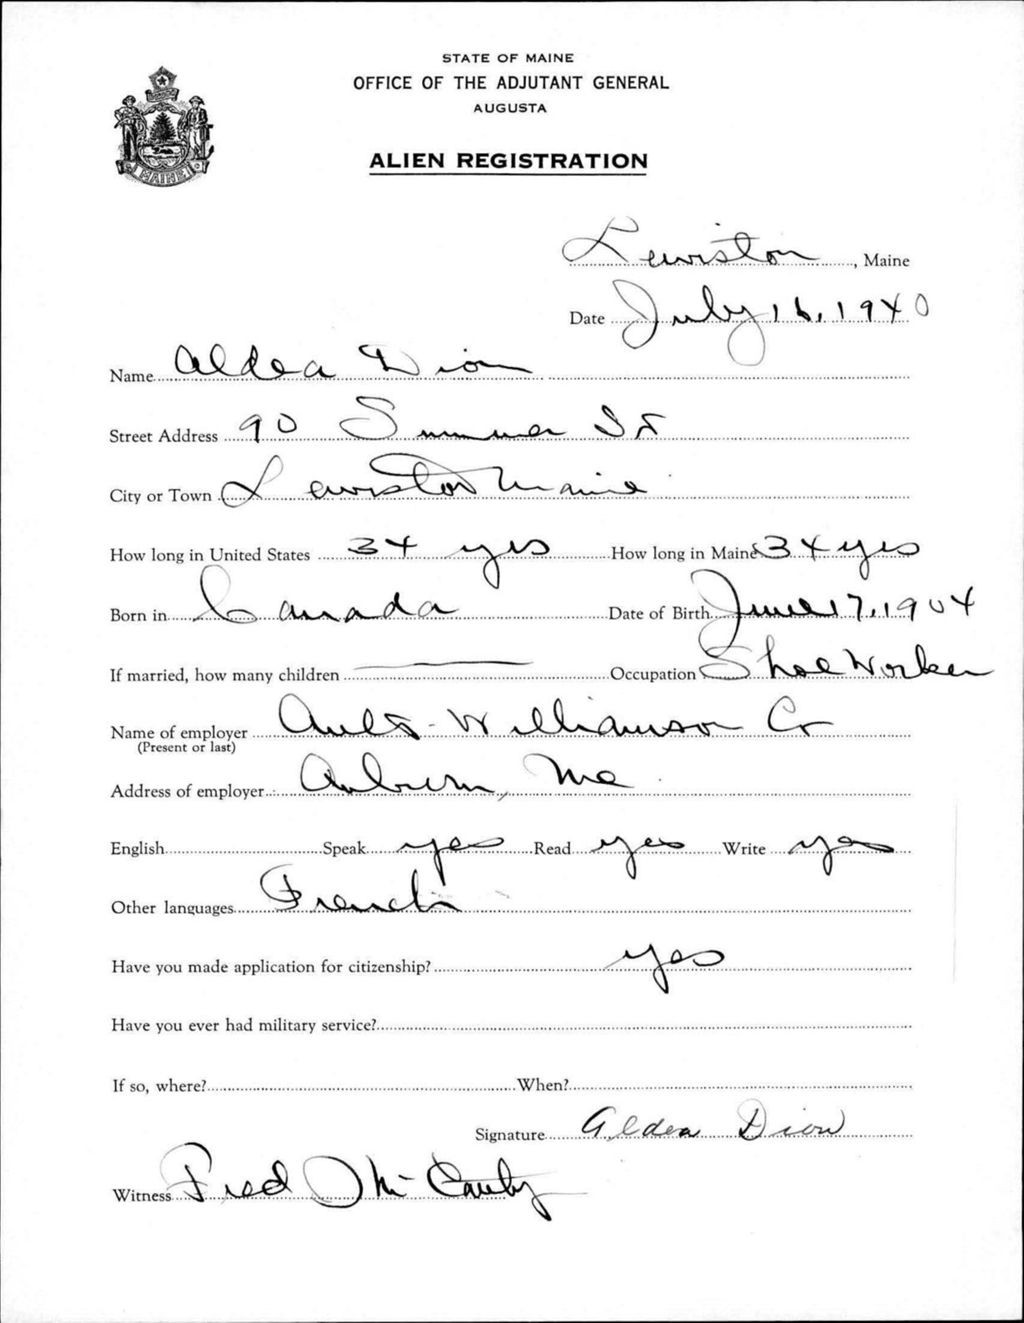 STATE OF MAINE
OFFICE OF THE ADJUTANT GENERAL
AUGUSTA
ALIEN REGISTRATION
MAINE
Lewiston, Maine
Date July 16, 1940
Name Aldea Dion
Street Address 90 Summer St
City or Town Lewiston Maine
How long in United States 34 yrs How long in Maine 34 yrs
Born in Canada Date of Birth June 17, 1904
If married, how many children — Occupation Shoe Worker
Name of employer Ault-Williamson Co
(Present or last)
Address of employer Auburn, Me
English Speak yes Read yes Write yes
Other languages French
Have you made application for citizenship? yes
Have you ever had military service?
If so, where? When?
Signature Aldea Dion
Witness Fred J McCarthy